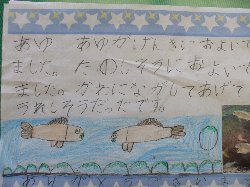 あゆ　あゆがげんきにおよいで
ました。たのしそうにおよいで
ました。かわにながしてあげて
うれしそうだったです。